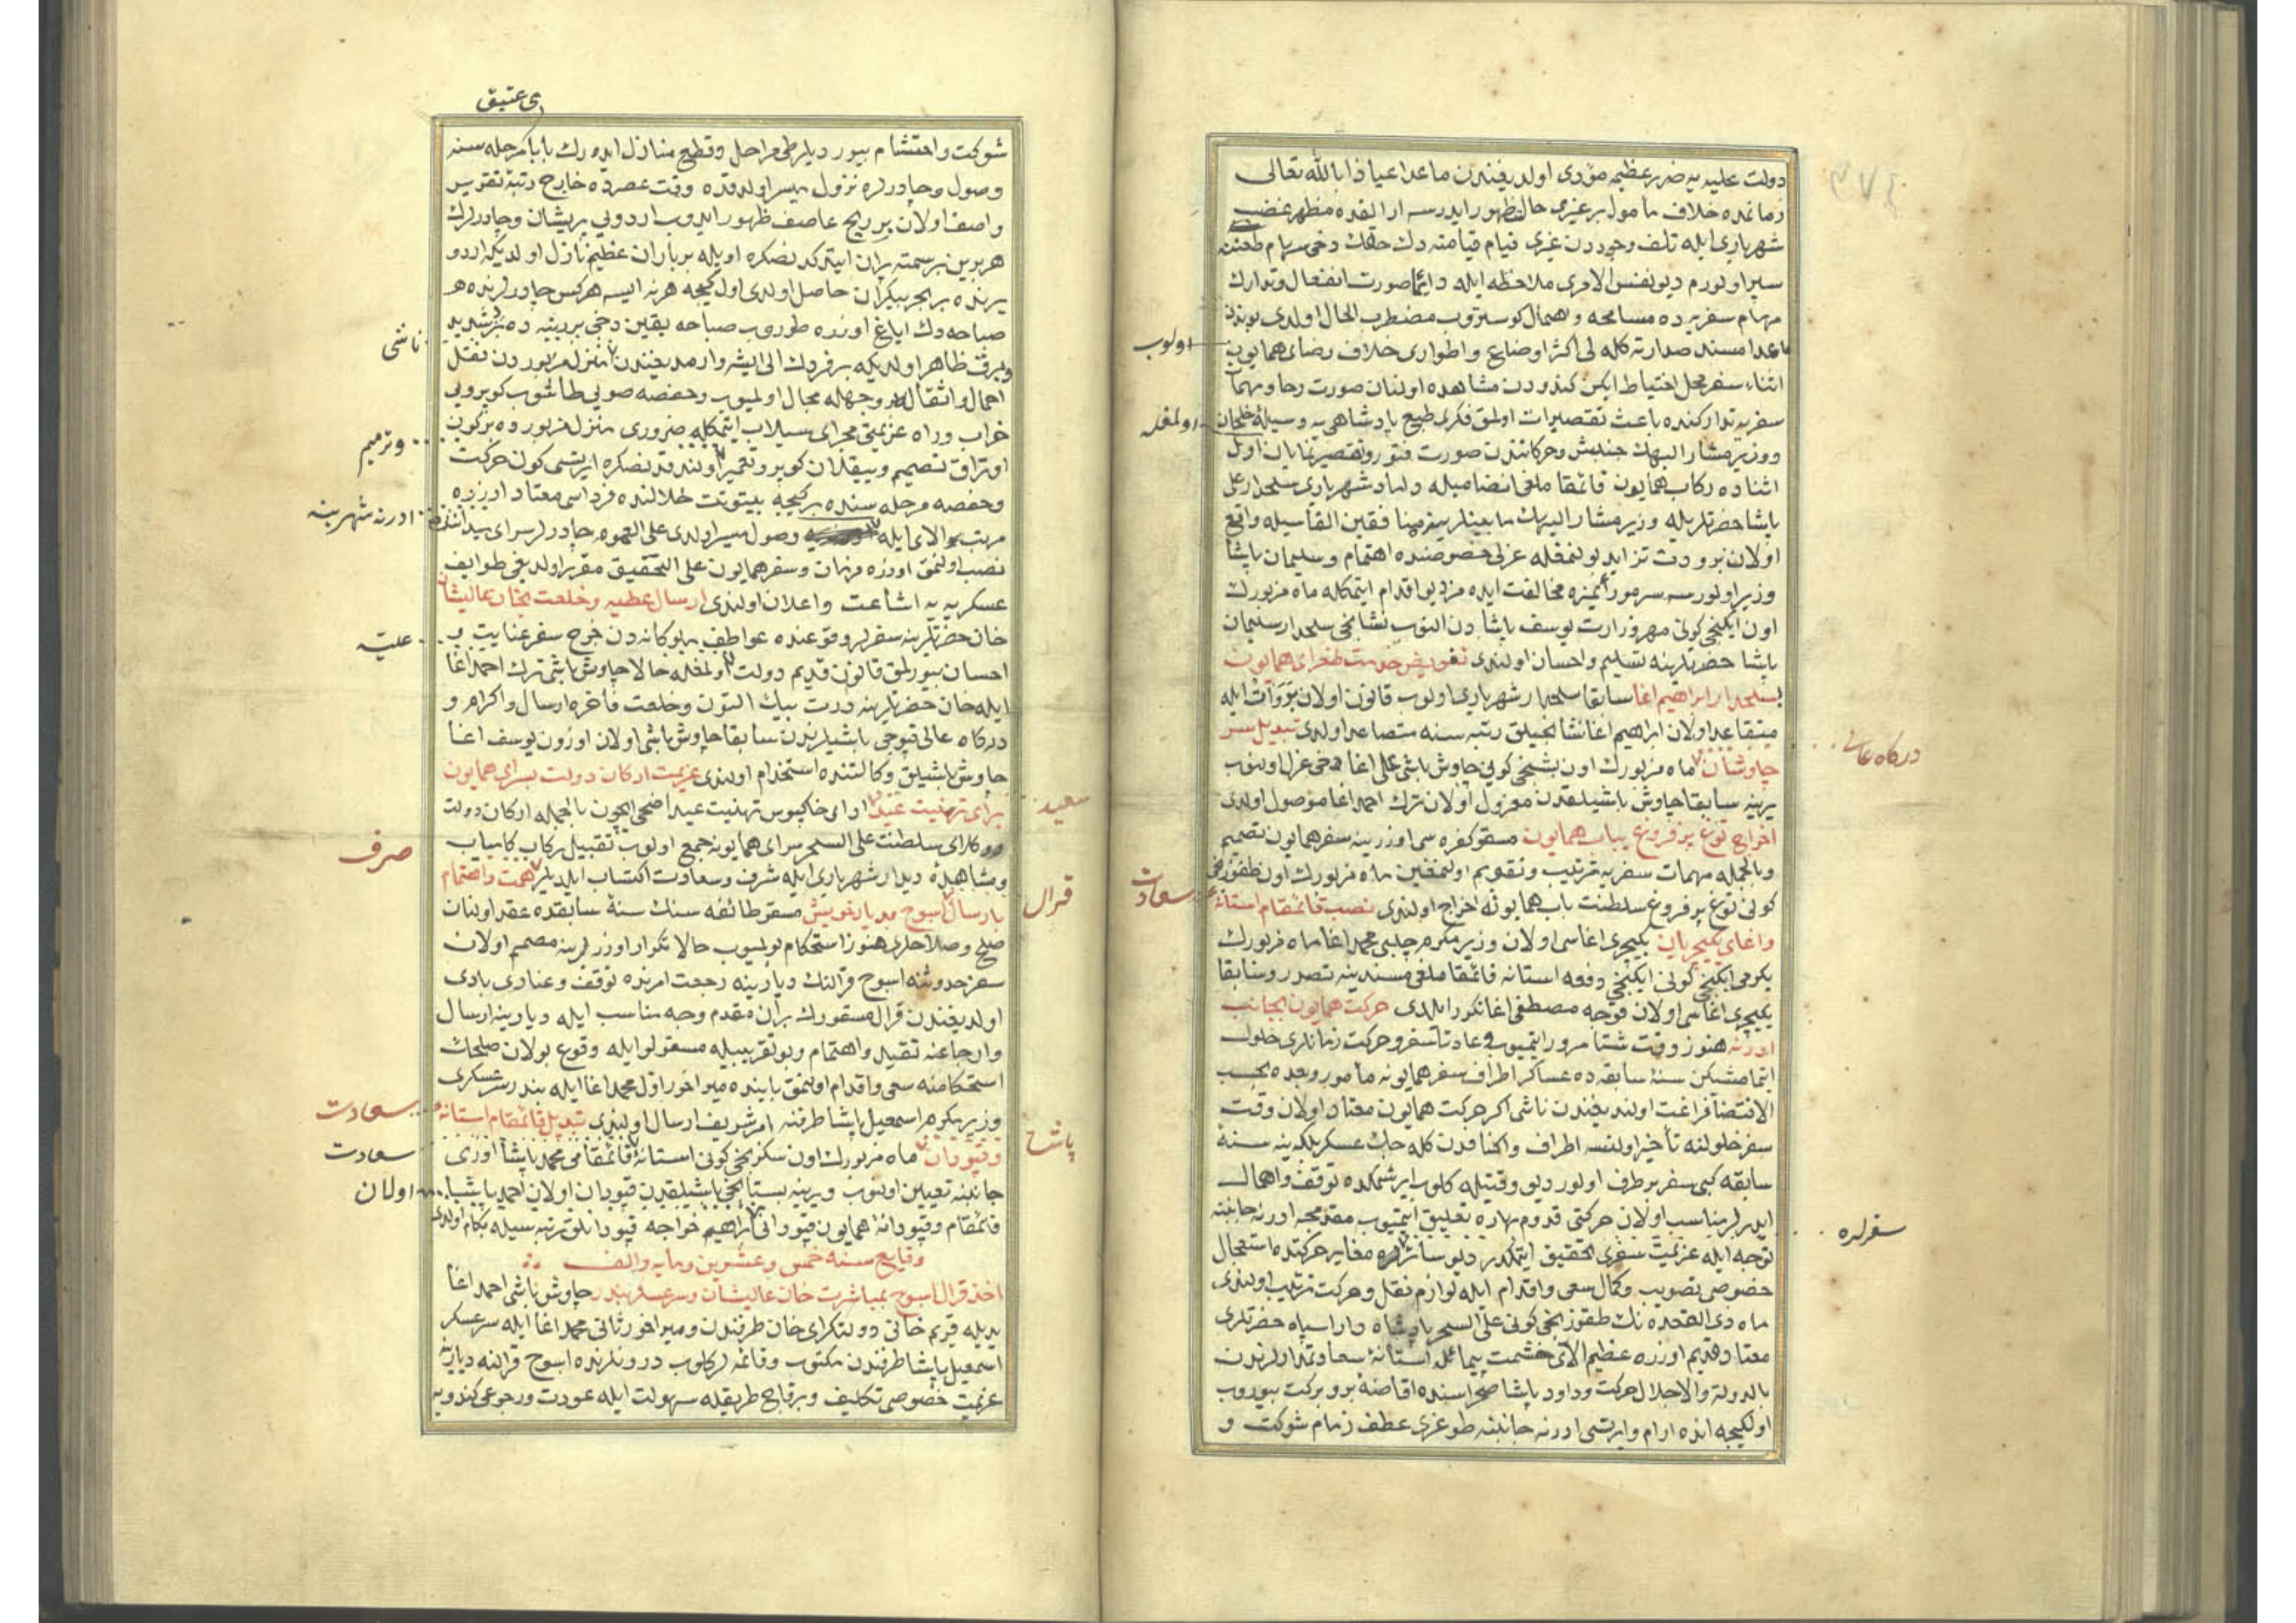 دولت علیه یه ضرر عظیمه مؤدی اولدیغندن ماعدا عیاذا بالله تعالی
زمانمده خلاف مأمول بر غیری حال ظهور ایدرسه ارالقده مظهر غضب
شهریاری ایله تلف وجوددن غیری قیام قیامته دك خلقك دخی سهام طعننه
سپر اولورم دیو نفس الامری ملاحظه ایله دائما صورت انفعال وتدارك
مهام سفریه ده مسامحه واهمال کوستروب مضطرب الحال اولدی بوندن
ماعدا مسند صدارته کله لی اکثر اوضاع واطواری خلاف رضای همایون
اولوب
اثناء سفر محل احتیاط ایکن کندودن مشاهده اولنان صورت رخاو مهما
سفریه تدارکنده باعث تقصیرات اولمق فکری طبع پادشاهی یه وسیلۀ خلجان
اولمغله
ووزیر مشار الیهك جنبش وحرکاتندن صورت فتور وتقصیر نمایان اول
اثناده رکاب همایون قائمقاملغی انضمامیله داماد شهریاری سلحدار علی
پاشا حضرتلریله وزیر مشار الیهك مابینلرینه منافقین القاسیله واقع
اولان برودت تزاید بولنمغله عزلی خصوصنده اهتمام وسلیمان پاشا
وزیر اولورسه سرمو رأیمزه مخالفت ایده مز دیو اقدام ایتمکله ماه مزبورك
اون ایکنجی کونی مهر وزارت یوسف پاشادن النوب نشانجی سلحدار سلیمان
پاشا حضرتلرینه تسلیم واحسان اولندی تفویض خدمت طغرای همایون
بسلحدار ابراهیم اغا سابقا سلحدار شهریاری اولوب قانون اولان ایله
متقاعد اولان ابراهیم اغا نشانجیلق رتبه سنه متصاعد اولدی تبدیل سر
چاوشان ماه مزبورك اون بشنجی کونی چاوش باشی علی اغا دخی عزل اولنوب
درکاه عالی
یرینه سابقا چاوش باشیلقدن معزول اولان ترك احمد اغا موصول اولدی
اخراج توغ پر فروغ بباب همایون مسقو کفره سی اوزرینه سفر همایون تصمیم
وبالجمله مهمات سفریه ترتیب وتقویم اولنمغین ماه مزبورك اون طقوزنجی
کونی توغ پر فروغ سلطنت باب همایونه اخراج اولندی نصب قائمقام استانۀ
سعادت
واغای یکیچریان یکیچری اغاسی اولان وزیر مکرم چلبی محمد اغا ماه مزبورك
یکرمی ایکنجی کونی ایکنجی دفعه استانه قائمقاملغی مسندینه تصدر وسابقا
یکیچری اغاسی اولان قوجه مصطفی اغا تکرر ایلدی حرکت همایون بجانب
ادرنه هنوز وقت شتا مرور ایتمیوب فی عادتا سفر وحرکت زمانلری حلول
ایتمامشیکن سنۀ سابقه ده عساکر اطراف سفر همایونه مأمور وبعده بحسب
الاقتضا فراغت اولندیغندن ناشی اکر حرکت همایون معتاد اولان وقت
سفر حلولنه تأخیر اولنسه اطراف واکنافدن کله جك عسکر بلکه ینه سنۀ
سابقه کبی سفر بر طرف اولور دیو وقتیله کلوب ایرشمکده توقف واهمال
ایدرلر مناسب اولان حرکتی قدوم بهاره تعلیق ایتمیوب مقدمجه ادرنه جانبنه
توجه ایله عزیمت سفری تحقیق ایتمکدر دیو سائره مغایر حرکتده استعجال
سفرلره
خصوصی تصویب وکمال سعی واقدام ایله لوازم نقل وحرکت ترتیب اولندی
ماه ذی القعده نك طقوزنجی کونی علی السحر پادشاه دارا سپاه حضرتلری
معتاد قدیم اوزره عظیم الای حشمت پیما ئله استانۀ سعادتمدارلرندن
بالدولة والاجلال حرکت وداود پاشا صحراسنده افاضۀ برو برکت بیوروب
اولکیجه انده ارام وایرتسی ادرنه جانبنه طوغری عطف زمام شوکت و
ی عتیق
شوکت واحتشام بیوردیلر طی مراحل وقطع منازل ایده رك بابا مرحله سنه
وصول وچادرلره نزول میسر اولدقده وقت عصرده خارج رتبۀ تقریر
واصف اولان بر ریح عاصف ظهور ایدوب اردویی پریشان وچادرلرك
هربرین بر سمته پران ایتدکدنصکره اویله بر باران عظیم نازل اولدیکه اردو
یرنده بر بحر بیکران حاصل اولدی اول کیجه هرنه ایسه هرکس چادرلرنده
صباحه دك ایاغ اوزره طوروب صباحه یقین دخی بر دینه ده شدید
وبرف ظاهر اولدیکه بر فردك الی ایشه وارمدیغندن منزل مزبوردن نقل
ناشی
احمال واثقاله بر وجهله مجال اولمیوب وحفصه صویی طاشوب کوپرویی
خراب وراه عزیمتی مجرای سیلاب ایتمکله ضروری منزل مزبورده بر کون
اوتراق تصمیم وییقیلان کوپرو تعمیر اولندقدنصکره ایرتسی کون حرکت
وترمیم
وحفصه مرحله سنده بر کیجه بیتوتت خلالنده فرداسی معتاد اوزره
مرتب الای ایله وصول میسر اولدی علی العموم چادرلر سرای میداننده
ادرنه شهرینه
نصب اولنمق اوزره فرمان وسفر همایون علی التحقیق مقرر اولدیغی طوایف
عسکریه یه اشاعت واعلان اولندی ارسال عطیه وخلعت بخان عالیشان
خان حضرتلرینه سفرلر وقوعنده عواطف ملوکانه دن خرج سفر عنایت و
علیّه
احسان بیورلمق قانون قدیم دولت اولمغله حالا چاوش باشی ترك احمد اغا
ایله خان حضرتلرینه درت بیك التون وخلعت فاخره ارسال واکرام و
درکاه عالی قپوجی باشیلرندن سابقا چاوش باشی اولان اوزون یوسف اغا
چاوش باشیلق وکالتنده استخدام اولندی عزیمت ارکان دولت بسرای همایون
برای تهنیت عید ادای خاکپوس تهنیت عید اضحی ایچون بالجمله ارکان دولت
سعید
ووکلای سلطنت علی السحر سرای همایونه جمع اولوب تقبیل رکاب کامیاب
ومشاهدۀ دیدار شهریاری ایله شرف وسعادت اکتساب ایلدیلر همت واهتمام
صرف
بارسال اسوج بدیار خویش مسقو طائفه سنك سنۀ سابقده عقد اولنان
قرال
صلح وصلاحلری هنوز استحکام بولمیوب حالا تکرار اوزرلرینه مصمم اولان
سفر حدوثنه اسوج قرالنك دیارینه رجعت امرنده توقف وعنادی بادی
اولدیغندن قرال مسفورك بر ان مقدم وجه مناسب ایله دیارینه ارسال
وارجاعنه تقید واهتمام وبو تقریبیله مسقولو ایله وقوع بولان صلحك
استحکامنه سعی واقدام اولنمق بابنده میراخور اول محمد اغا ایله بندر سرعسکری
وزیر مکرم اسمعیل پاشا طرفنه امر شریف ارسال اولندی تبدیل قائمقام استانه
سعادت
وقپودان ماه مزبورك اون سکزنجی کونی استانۀ قائمقامی محمد پاشا اوزی
پاشا
سعادت
جانبنه تعیین اولنوب ویرینه بستانجی باشیلقدن قپودان اولان احمد پاشا
اولان
قائمقام وقپودانۀ همایون قپودانی ابراهیم خواجه قپودانلق مرتبه سیله بکام اولدی
وقایع سنه خمس وعشرین ومایه والف
اخذ قرال اسوج بمباشرت خان عالیشان وسرعسکر بندر چاوش باشی احمد اغا
یدیله قریم خانی دولتکرای خان طرفندن ومیراخور ثانی محمد اغا ایله سرعسکر
اسمعیل پاشا طرفندن مکتوب وقائمه لر کلوب درونلرنده اسوج قرالنه دیارینه
عزیمت خصوصی تکلیف وبرقاچ طریقله سهولت ایله عودت ورجوعی کندویه